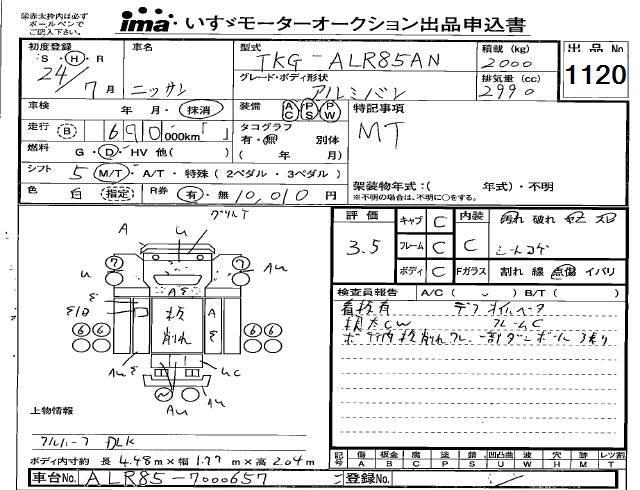 ㊟赤太枠内は必ず ボールペンで ご記入下さい。
ima いすゞモーターオークション出品申込書
初度登録 S・H・R 24/7月
車名 ニッサン
型式 TKG-ALR85AN
グレード・ボディ形状 アルミバン
積載(kg) 2000
排気量(cc) 2990
出品No 1120
車検 年 月・抹消
装備 AC PS PW
特記事項 MT
走行 B 690,000km「 」
タコグラフ 有・無 別体 ( 年 月)
燃料 G・D・HV 他( )
シフト 5 M/T・A/T・特殊(2ペダル・3ペダル)
架装物年式:( 年式)・不明
※不明の場合は、不明に○をする。
色 白 指定 R券 有・無 10,010 円
評価 3.5
キャブ C
フレーム C
ボディ C
内装 C 汚れ 破れ ヤニ スレ
シートコゲ
Fガラス 割れ 線 点傷 イバリ
検査員報告 A/C( ) B/T( )
看板有
フレームC
A
U
7
7
U
AU
AE
板 削れ
A
E
6 6
6 6
AU
UC
AU
AU
上物情報
DLK
ボディ内寸約 長 4.48m×幅 1.77m×高 2.04m
記号 傷A 板金B 腐C 塗P 錆S 凹凸曲U 波W 穴H 跡M レツ割T
車台No. ALR85-7000657
登録No.